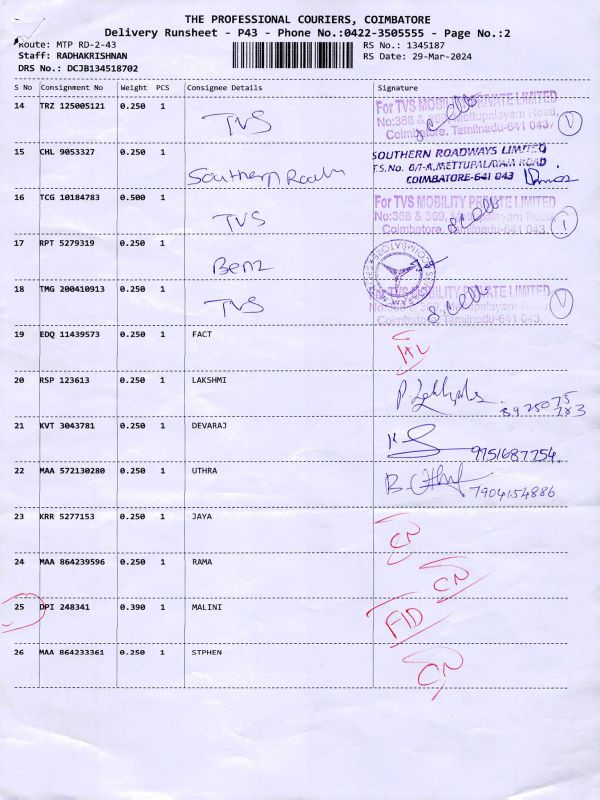 THE PROFESSIONAL COURIERS, COIMBATORE
Delivery Runsheet - P43 - Phone No.:0422-3505555 - Page No.:2
Route: MTP RD-2-43 RS No.: 1345187
Staff: RADHAKRISHNAN RS Date: 29-Mar-2024
DRS No.: DCJB134518702
S No Consignment No Weight PCS Consignee Details Signature
14 TRZ 125005121 0.250 1 TVS
For TVS MOBILITY PRIVATE LIMITED
No:368 & 369, Mettupalayam Road,
Coimbatore, Tamilnadu-641 043.
15 CHL 9053327 0.250 1 Southern Roads
SOUTHERN ROADWAYS LIMITED
T.S.No. 6/7-A, METTUPALAYAM ROAD
COIMBATORE-641 043
16 TCG 10184783 0.500 1 TVS
For TVS MOBILITY PRIVATE LIMITED
No:368 & 369, Mettupalayam Road,
Coimbatore, Tamilnadu-641 043.
17 RPT 5279319 0.250 1 Benz
18 TMG 200410913 0.250 1 TVS
For TVS MOBILITY PRIVATE LIMITED
No:368 & 369, Mettupalayam Road,
Coimbatore, Tamilnadu-641 043.
19 EDQ 11439573 0.250 1 FACT
20 RSP 123613 0.250 1 LAKSHMI
21 KVT 3043781 0.250 1 DEVARAJ 9751687754
22 MAA 572130280 0.250 1 UTHRA 7904154886
23 KRR 5277153 0.250 1 JAYA CN
24 MAA 864239596 0.250 1 RAMA CN
25 DPI 248341 0.390 1 MALINI FID
26 MAA 864233361 0.250 1 STPHEN CN